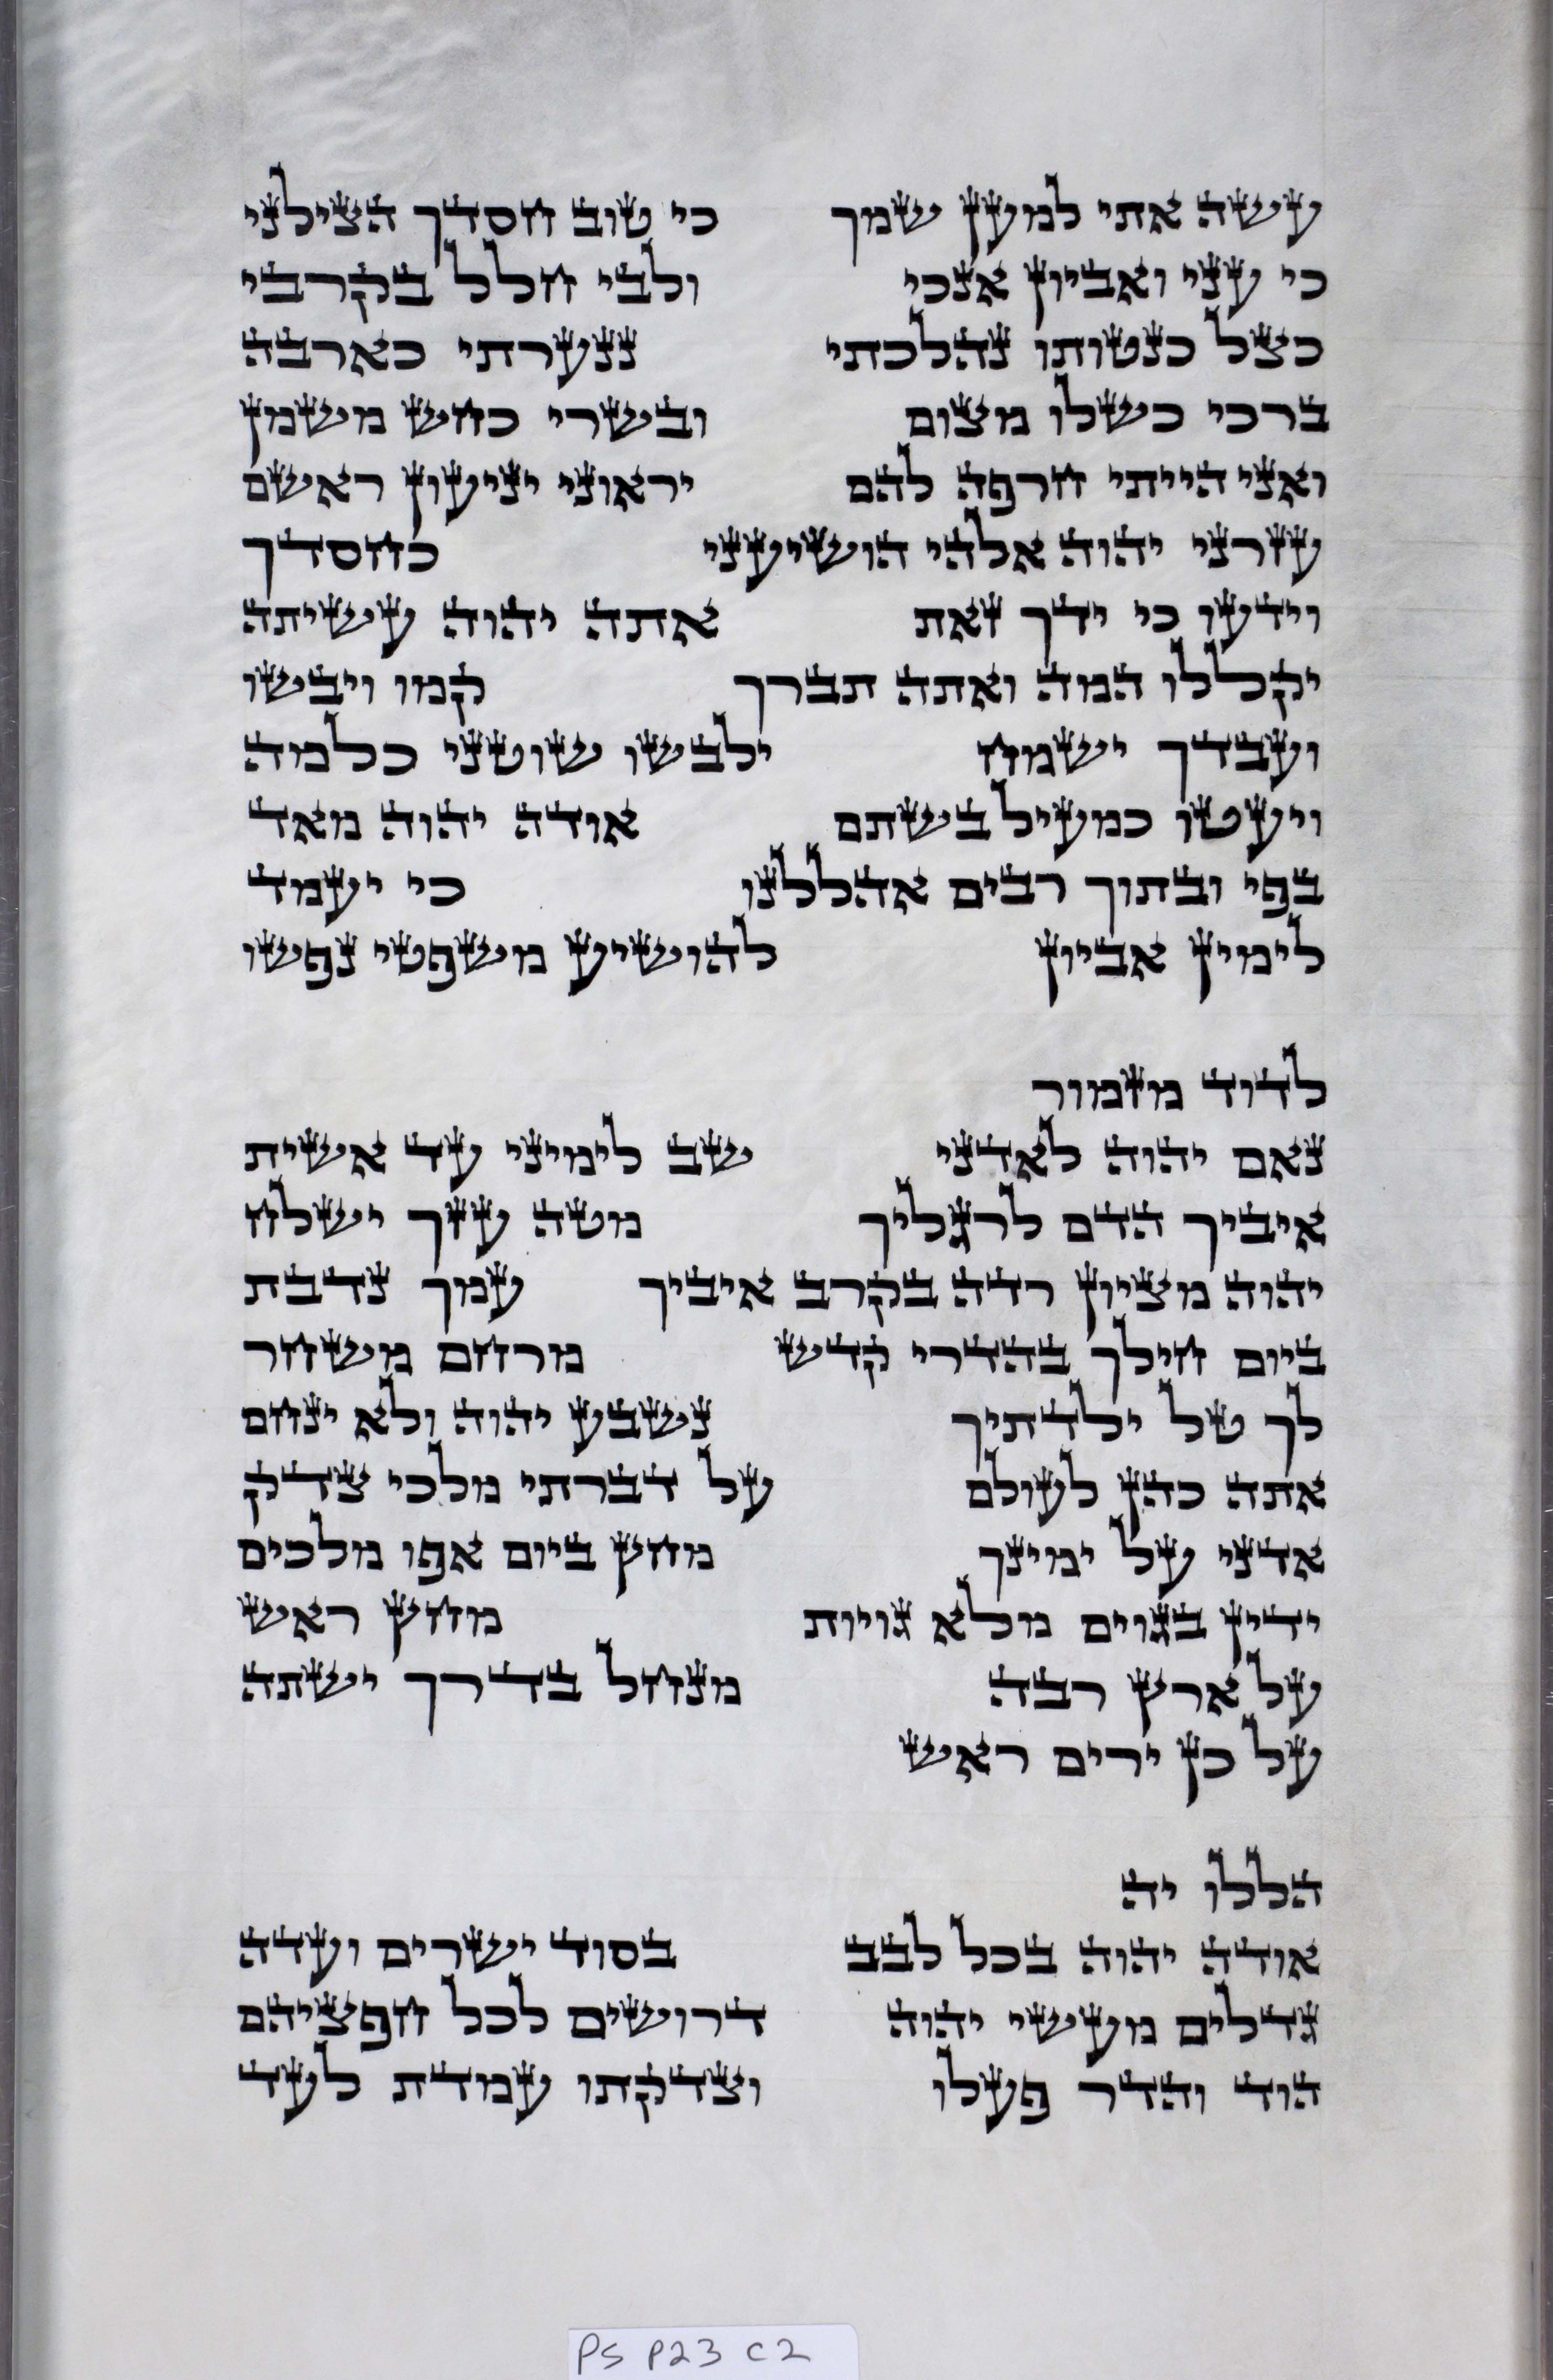 עשה אתי למען שמך כי טוב חסדך הצילני
כי עני ואביון אנכי ולבי חלל בקרבי
כצל כנטותו נהלכתי ננערתי כארבה
ברכי כשלו מצום ובשרי כחש משמן
ואני הייתי חרפה להם יראוני יניעון ראשם
עזרני יהוה אלהי הושיעני כחסדך
וידעו כי ידך זאת אתה יהוה עשיתה
יקללו המה ואתה תברך קמו ויבשו
ועבדך ישמח ילבשו שוטני כלמה
ויעטו כמעיל בשתם אודה יהוה מאד
בפי ובתוך רבים אהללנו כי יעמד
לימין אביון להושיע משפטי נפשו
לדוד מזמור
נאם יהוה לאדני שב לימיני עד אשית
איביך הדם לרגליך מטה עזך ישלח
יהוה מציון רדה בקרב איביך עמך נדבת
ביום חילך בהדרי קדש מרחם משחר
לך טל ילדתיך נשבע יהוה ולא ינחם
אתה כהן לעולם על דברתי מלכי צדק
אדני על ימינך מחץ ביום אפו מלכים
ידין בגוים מלא גויות מחץ ראש
על ארץ רבה מנחל בדרך ישתה
על כן ירים ראש
הללו יה
אודה יהוה בכל לבב בסוד ישרים ועדה
גדלים מעשי יהוה דרושים לכל חפציהם
הוד והדר פעלו וצדקתו עמדת לעד
PS P23 C2